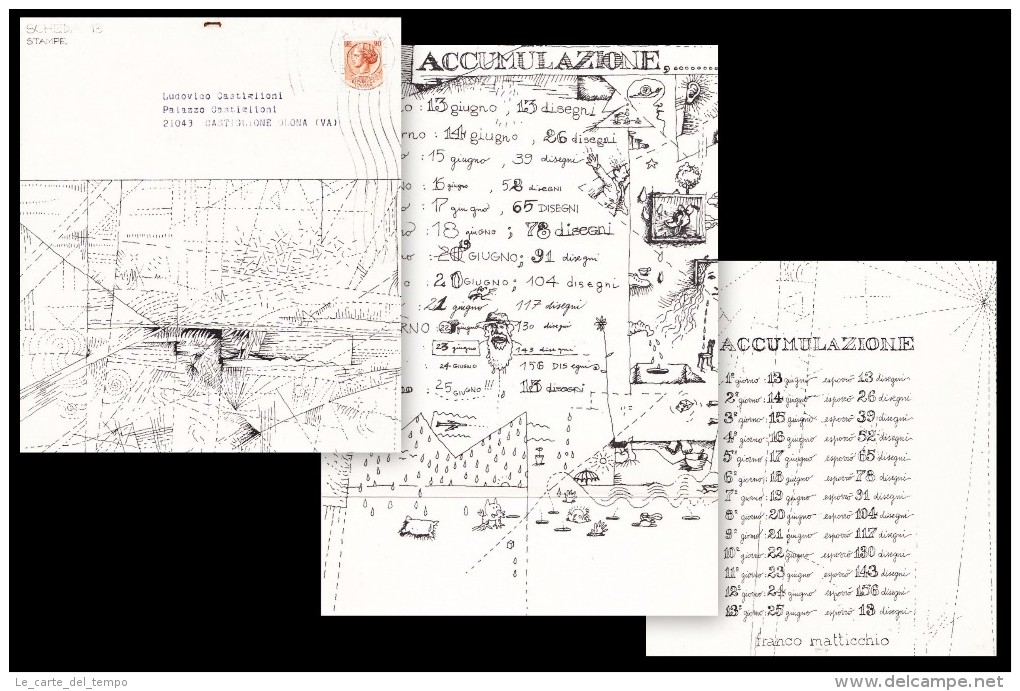 SCHED 13
STAMPE
Ludovico Castiglioni
Palazzo Castiglioni
21043 CASTIGLIONE OLONA (VA)
ACCUMULAZIONE,........
o : 13 giugno , 13 disegni
rno : 14 giugno , 26 disegni
o : 15 giugno , 39 disegni
NO : 16 giugno , 52 disegni
NO : 17 giugno , 65 DISEGNI
NO : 18 giugno ; 78 disegni
NO : 20 19 GIUGNO; 91 disegni
: 20 GIUGNO; 104 disegni
: 21 giugno 117 disegni
ORNO : 22 giugno 130 disegni
: 23 giugno 143 disegni
: 24 GIUGNO 156 DISegni
: 25 GIUGNO!!! 13 disegni
ACCUMULAZIONE
1° giorno : 13 giugno esporrò 13 disegni
2° giorno : 14 giugno esporrò 26 disegni
3° giorno : 15 giugno esporrò 39 disegni
4° giorno : 16 giugno esporrò 52 disegni
5° giorno : 17 giugno esporrò 65 disegni
6° giorno : 18 giugno esporrò 78 disegni
7° giorno : 19 giugno esporrò 91 disegni
8° giorno : 20 giugno esporrò 104 disegni
9° giorno : 21 giugno esporrò 117 disegni
10° giorno : 22 giugno esporrò 130 disegni
11° giorno : 23 giugno esporrò 143 disegni
12° giorno : 24 giugno esporrò 156 disegni
13° giorno : 25 giugno esporrò 13 disegni
franco matticchio
Le_carte_del_tempo
delcampe.net